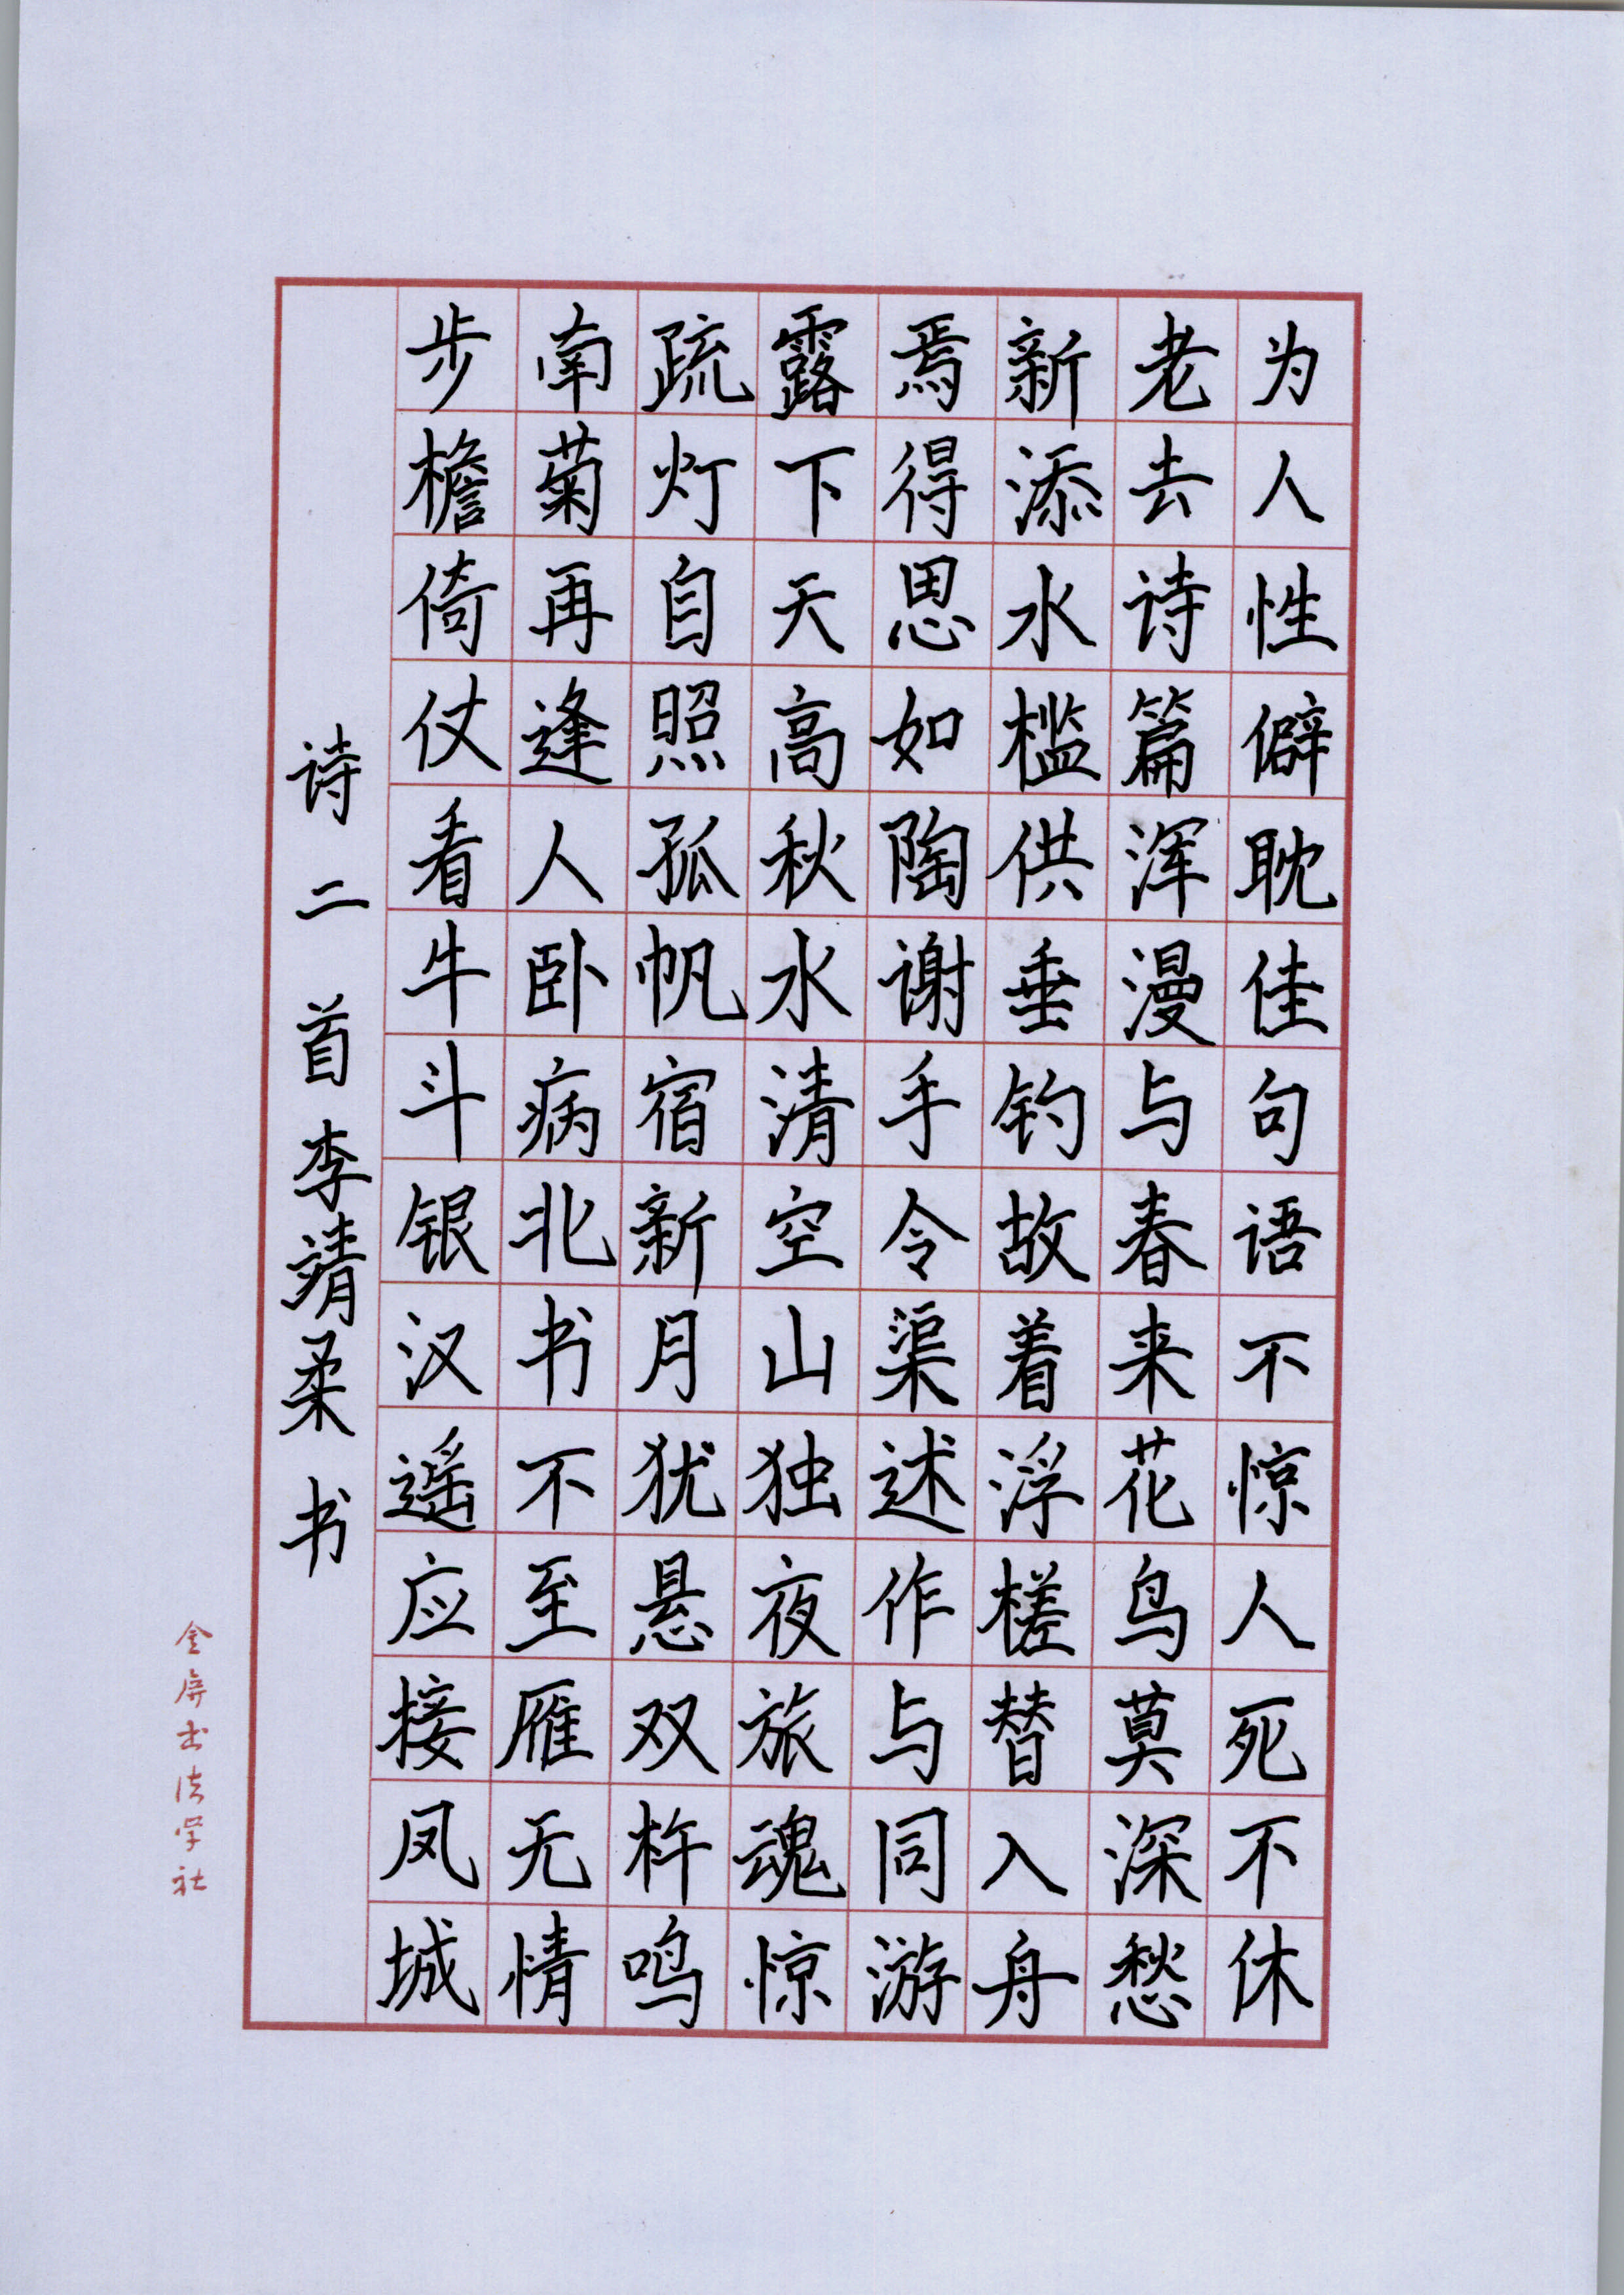 为人性僻耽佳句语不惊人死不休
老去诗篇浑漫与春来花鸟莫深愁
新添水槛供垂钓故着浮槎替入舟
焉得思如陶谢手令渠述作与同游
露下天高秋水清空山独夜旅魂惊
疏灯自照孤帆宿新月犹悬双杵鸣
南菊再逢人卧病北书不至雁无情
步檐倚仗看牛斗银汉遥应接凤城
诗二首李靖柔书
金屏书法学社